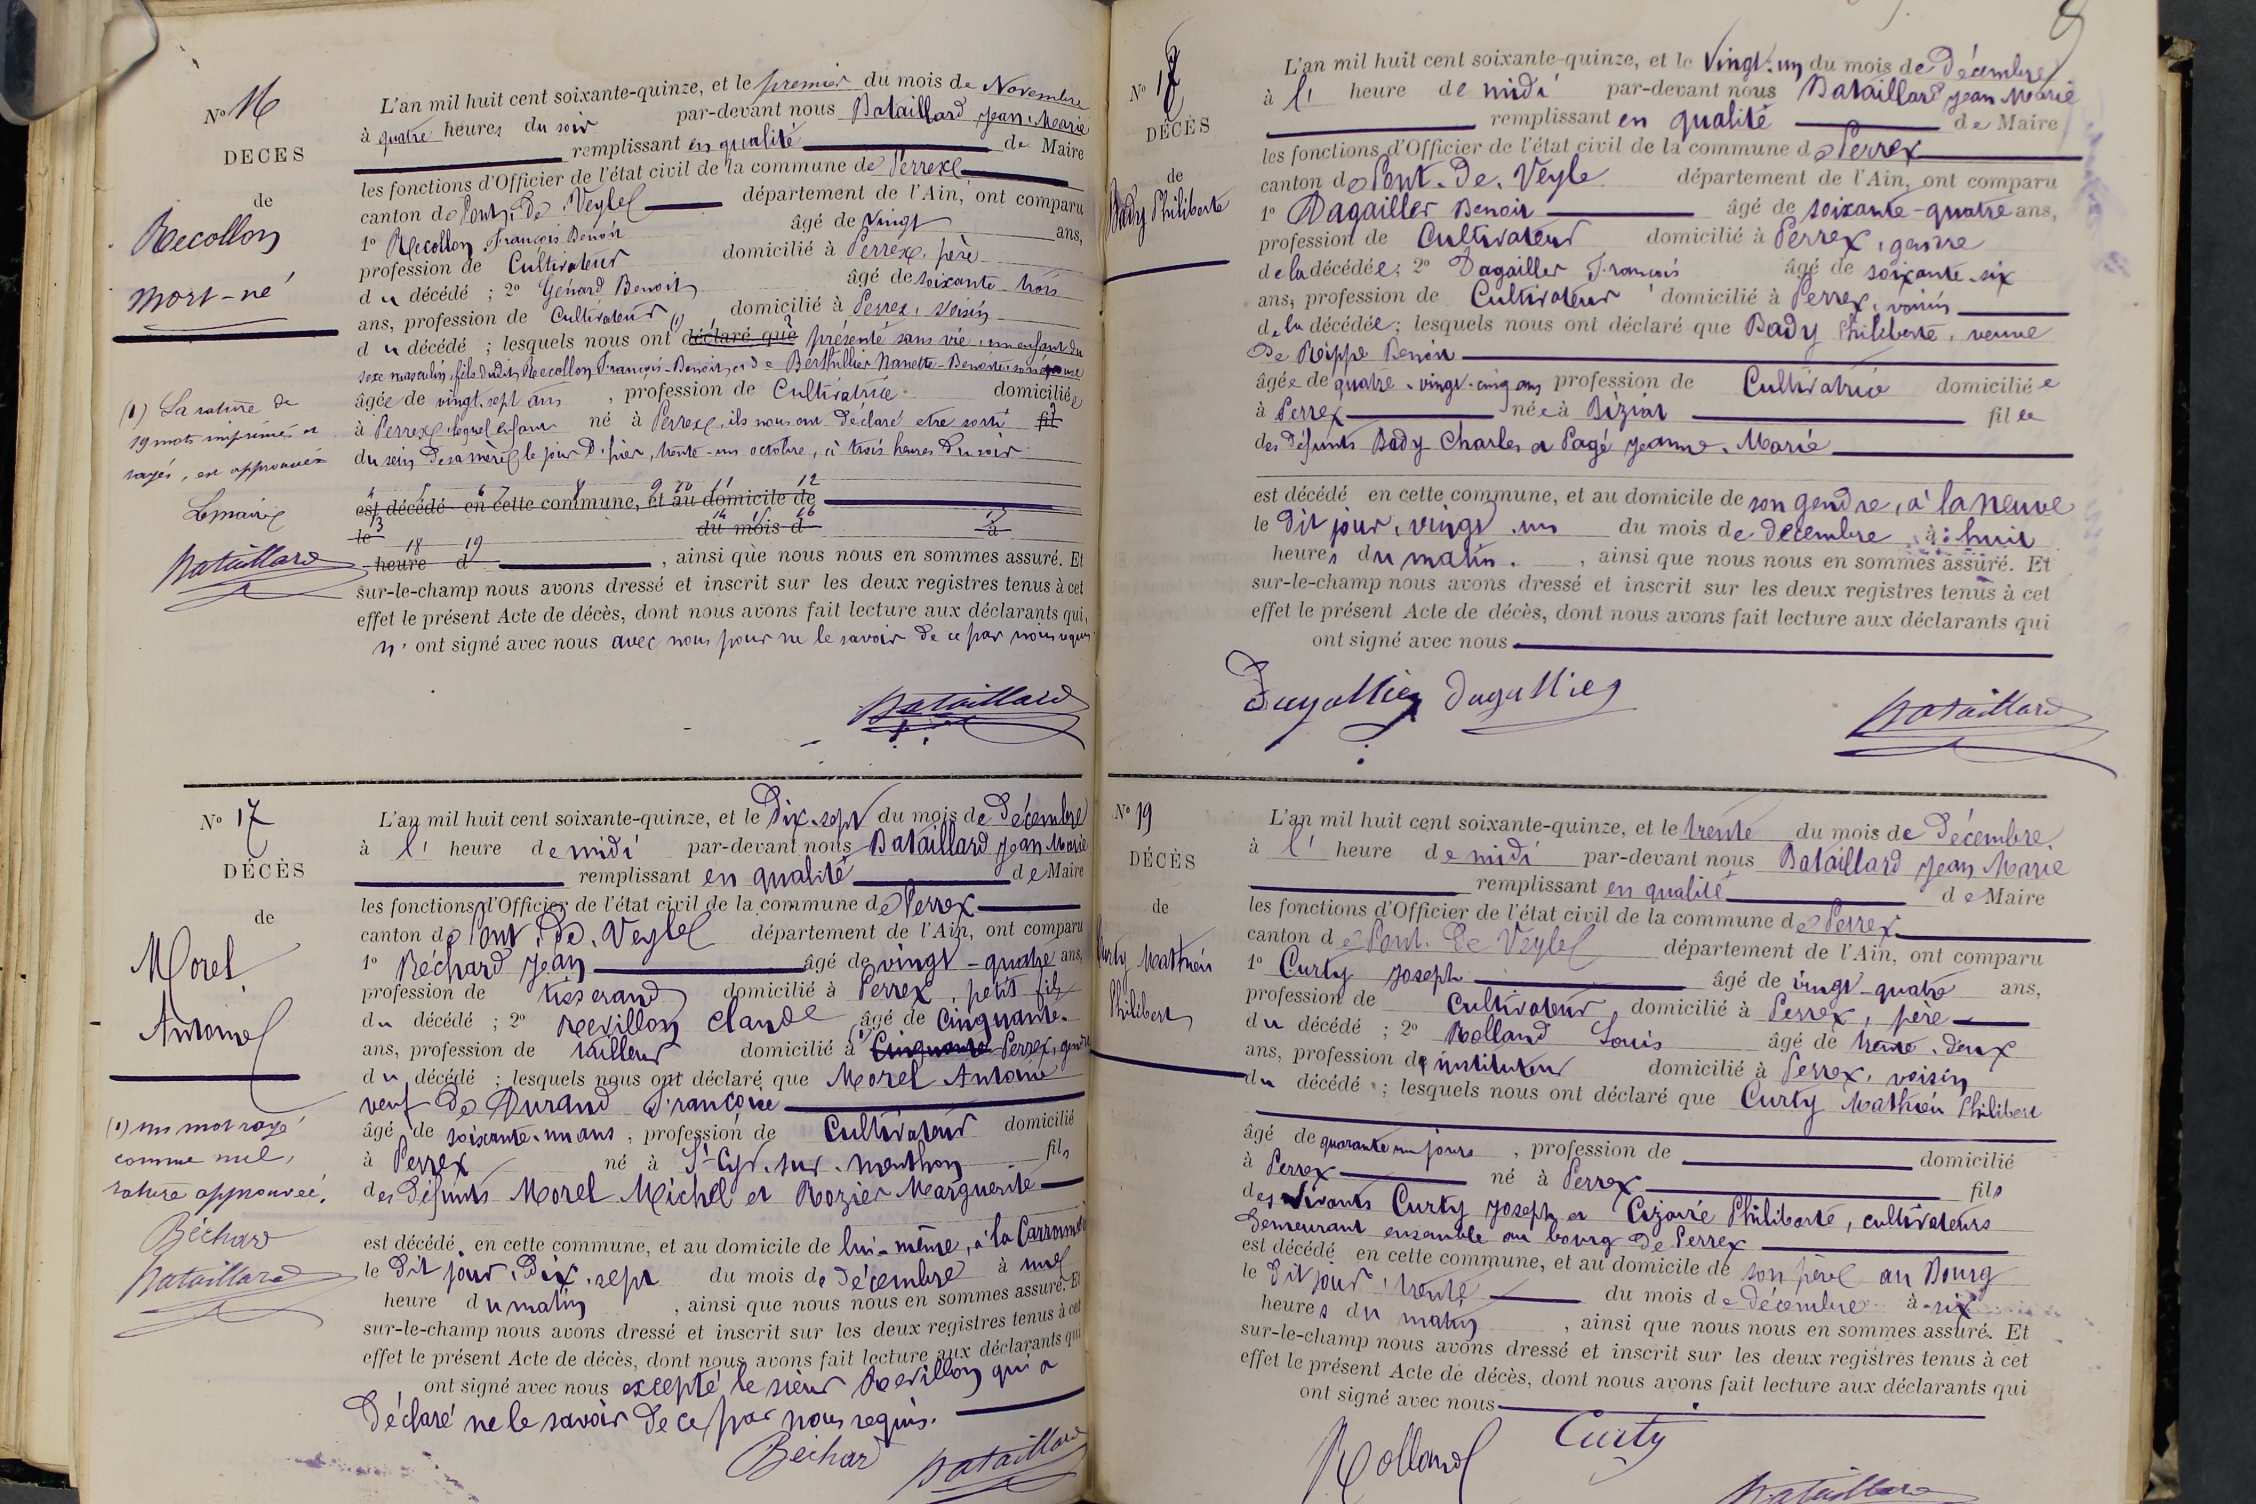 No 16
DÉCÈS
de
Recollon
mort-né
(1) La rature de
19 mots imprimés et
rayés, est approuvée
Le maire
Bataillard
L'an mil huit cent soixante-quinze, et le premier du mois de Novembre
à quatre heures du soir par-devant nous Bataillard Jean-Marie
remplissant en qualité de Maire
les fonctions d'Officier de l'état civil de la commune de Perrex
canton de Pont-De-Veyle département de l'Ain, ont comparu
1º Recollon François Benoit âgé de vingt ans,
profession de Cultivateur domicilié à Perrex, père
du décédé ; 2º Génard Benoit âgé de soixante-trois
ans, profession de Cultivateur domicilié à Perrex, voisin
du décédé ; lesquels nous ont (1) déclaré que présenté sans vie, un enfant du
sexe masculin, fils dudit Recollon François-Benoit, et de Berthillier Nanette-Benoite son épouse
âgée de vingt-sept ans, profession de Cultivatrice domiciliée
à Perrex, lequel enfant né à Perrex, ils nous ont déclaré etre sorti fil
du sein de sa mère le jour d'hier, trente-un octobre, à trois heures du soir
est décédé en cette commune, et au domicile de
le du mois d à
heure d , ainsi que nous nous en sommes assuré. Et
sur-le-champ nous avons dressé et inscrit sur les deux registres tenus à cet
effet le présent Acte de décès, dont nous avons fait lecture aux déclarants qui,
n'ont signé avec nous avec nous pour ne le savoir de ce par nous requis
Bataillard
No 17
DÉCÈS
de
Morel
Antoine
(1) un mot rayé
comme nul,
rature approuvée.
Béchard
Bataillard
L'an mil huit cent soixante-quinze, et le Dix-sept du mois de Décembre
à l' heure de midi par-devant nous Bataillard Jean Marie
remplissant en qualité de Maire
les fonctions d'Officier de l'état civil de la commune de Perrex
canton de Pont-De-Veyle département de l'Ain, ont comparu
1º Béchard Jean âgé de vingt-quatre ans,
profession de tisserand domicilié à Perrex, petit fils
du décédé ; 2º Revillon Claude âgé de Cinquante
ans, profession de tailleur domicilié à (1) Cinquante Perrex, gendre
du décédé ; lesquels nous ont déclaré que Morel Antoine
veuf de Durand Françoise
âgé de soixante-un ans, profession de Cultivateur domicilié
à Perrex né à St-Cyr-sur-Menthon fils
des défunts Morel Michel et Rozier Marguerite
est décédé en cette commune, et au domicile de lui-même, à la
le dit jour, Dix-sept du mois de Décembre à une
heure du matin , ainsi que nous nous en sommes assuré. Et
sur-le-champ nous avons dressé et inscrit sur les deux registres tenus à cet
effet le présent Acte de décès, dont nous avons fait lecture aux déclarants qui
ont signé avec nous excepté le sieur Revillon qui a
Déclaré ne le savoir de ce par nous requis.
Béchard Bataillard
No 18
DÉCÈS
de
Bady Philiberte
L'an mil huit cent soixante-quinze, et le Vingt-un du mois de Décembre
à l' heure de midi par-devant nous Bataillard Jean Marie
remplissant en qualité de Maire
les fonctions d'Officier de l'état civil de la commune de Perrex
canton de Pont-De-Veyle département de l'Ain, ont comparu
1º Dagailler Benoit âgé de soixante-quatre ans,
profession de Cultivateur domicilié à Perrex, gendre
de la décédée ; 2º Dagailler François âgé de soixante-six
ans, profession de Cultivateur domicilié à Perrex, voisin
de la décédée ; lesquels nous ont déclaré que Bady Philiberte, veuve
de Rippe Benoit
âgée de quatre-vingt-cinq ans profession de Cultivatrice domiciliée
à Perrex née à Biziat fille
des défunts Bady Charles et Pagé Jeanne-Marie
est décédé en cette commune, et au domicile de son gendre, à la neuve
le dit jour, vingt-un du mois de décembre à huit
heures du matin. , ainsi que nous nous en sommes assuré. Et
sur-le-champ nous avons dressé et inscrit sur les deux registres tenus à cet
effet le présent Acte de décès, dont nous avons fait lecture aux déclarants qui
ont signé avec nous
Dagallier Dagallier Bataillard
No 19
DÉCÈS
de
Curty Mathieu
Philibert
L'an mil huit cent soixante-quinze, et le trente du mois de Décembre
à l' heure de midi par-devant nous Bataillard Jean Marie
remplissant en qualité de Maire
les fonctions d'Officier de l'état civil de la commune de Perrex
canton de Pont-De Veyle département de l'Ain, ont comparu
1º Curty Joseph âgé de vingt-quatre ans,
profession de Cultivateur domicilié à Perrex, père
du décédé ; 2º Rolland Louis âgé de trente-deux
ans, profession de instituteur domicilié à Perrex, voisin
du décédé ; lesquels nous ont déclaré que Curty Mathieu Philibert
âgé de quarante-un jours, profession de domicilié
à Perrex né à Perrex fils
des vivants Curty Joseph et Cizaire Philiberte, cultivateurs
demeurant ensemble au bourg de Perrex
est décédé en cette commune, et au domicile de son père au Bourg
le dit jour, trente du mois de décembre à six
heures du matin , ainsi que nous nous en sommes assuré. Et
sur-le-champ nous avons dressé et inscrit sur les deux registres tenus à cet
effet le présent Acte de décès, dont nous avons fait lecture aux déclarants qui
ont signé avec nous
Rolland Curty Bataillard